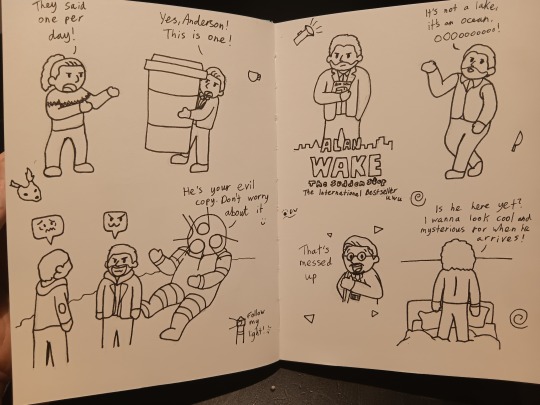 They said
one per
day!
Yes, Anderson!
This is one!
He's your evil
copy. Don't worry
about it
Follow
my
light!
ALAN
WAKE
The Sudden Stop
The International Bestseller
uwu
It's not a lake,
it's an ocean.
OOOooooooo!
That's
messed
up
Is he here yet?
I wanna look cool and
mysterious for when he
arrives!